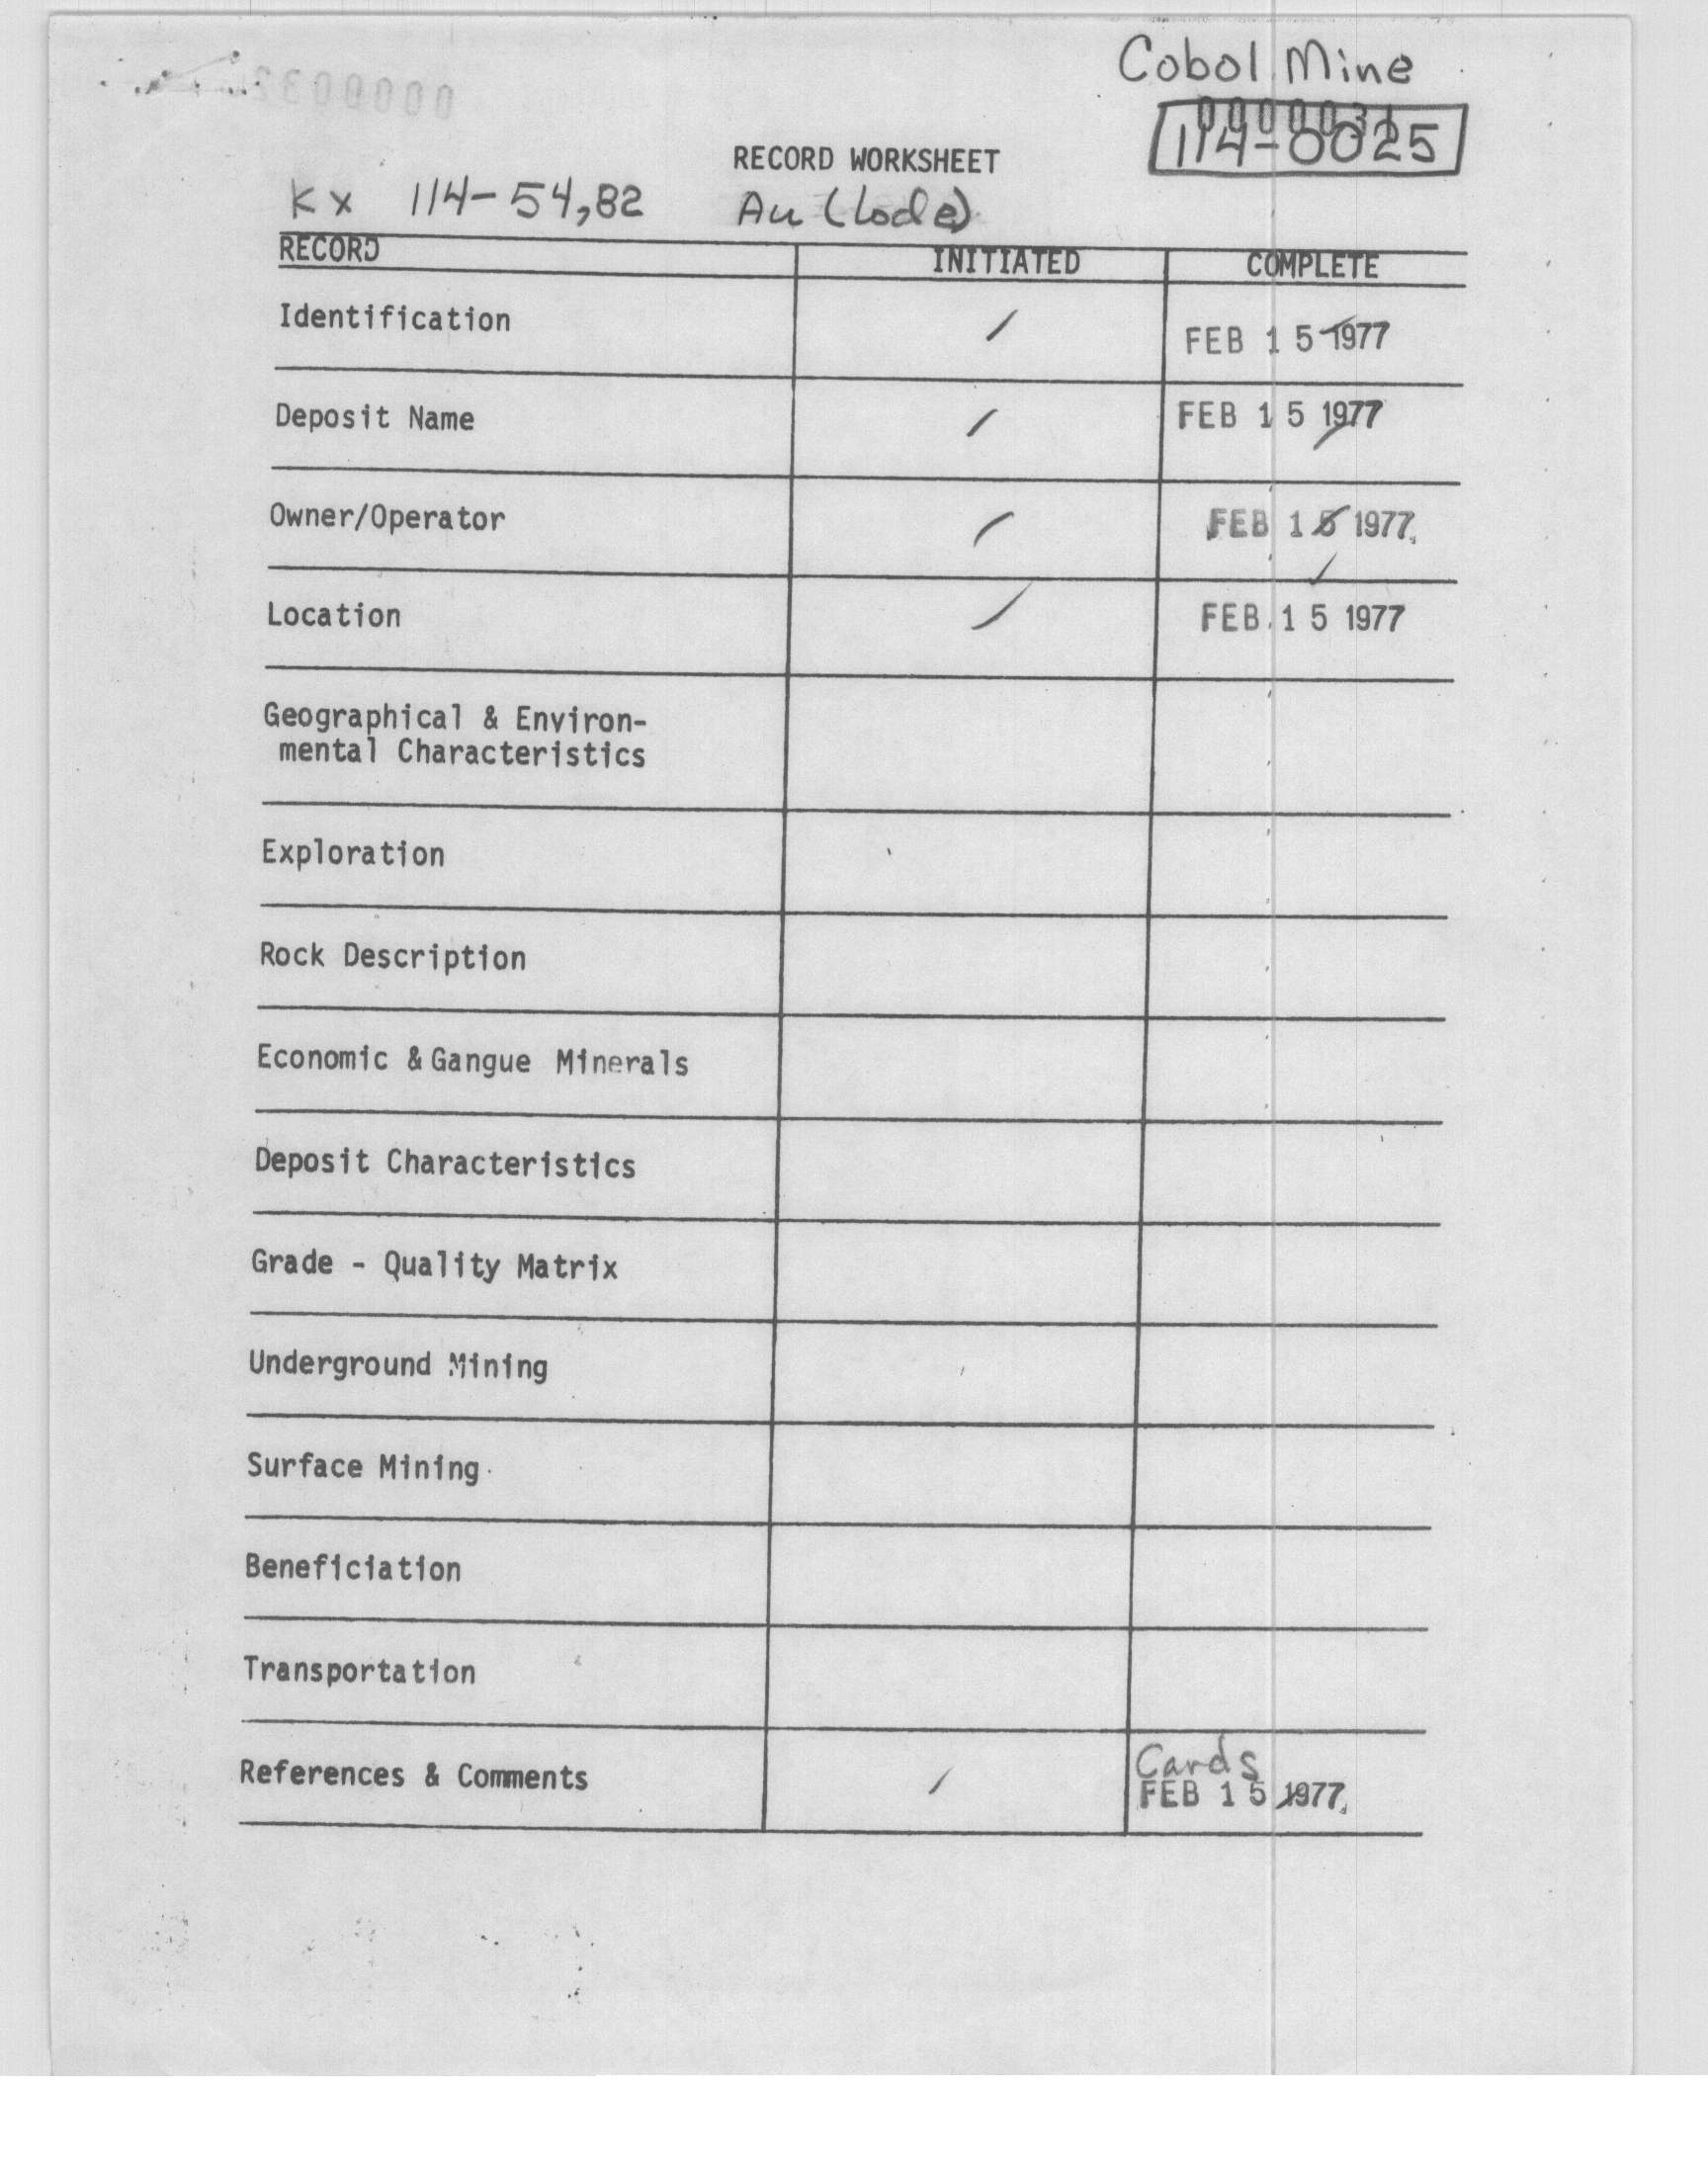 Cobol Mine
114-0025
RECORD WORKSHEET
Kx 114-54,82 Au (Lode)
RECORD INITIATED COMPLETE
Identification / FEB 15 1977
Deposit Name / FEB 15 1977
Owner/Operator / FEB 15 1977
Location / FEB 15 1977
Geographical & Environ-
mental Characteristics
Exploration
Rock Description
Economic & Gangue Minerals
Deposit Characteristics
Grade - Quality Matrix
Underground Mining
Surface Mining
Beneficiation
Transportation
Cards
References & Comments / FEB 15 1977